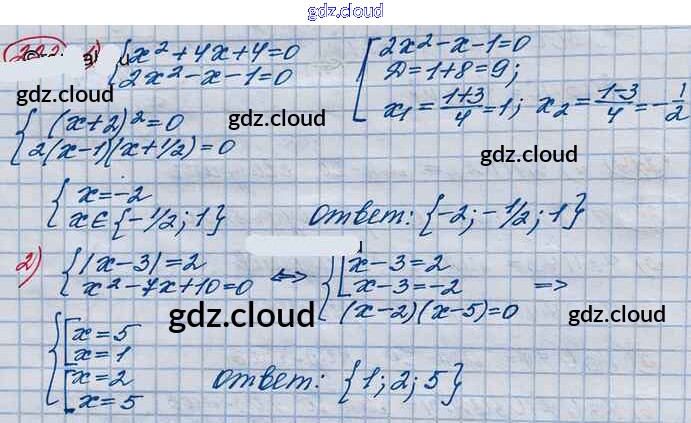 gdz.cloud
1) { x² + 4x + 4 = 0
2x² - x - 1 = 0
[ 2x² - x - 1 = 0
D = 1 + 8 = 9;
x₁ = (1+3)/4 = 1; x₂ = (1-3)/4 = -1/2
gdz.cloud
gdz.cloud
{ (x+2)² = 0
2(x-1)(x+1/2) = 0
gdz.cloud
gdz.cloud
{ x = -2
x ∈ {-1/2; 1}
ответ: {-2; -1/2; 1}
2) { |x-3| = 2
x² - 7x + 10 = 0
⇔ { [ x-3 = 2
x-3 = -2
(x-2)(x-5) = 0
⇒
gdz.cloud
gdz.cloud
{ [ x = 5
x = 1
[ x = 2
x = 5
ответ: {1; 2; 5}
gdz.cloud